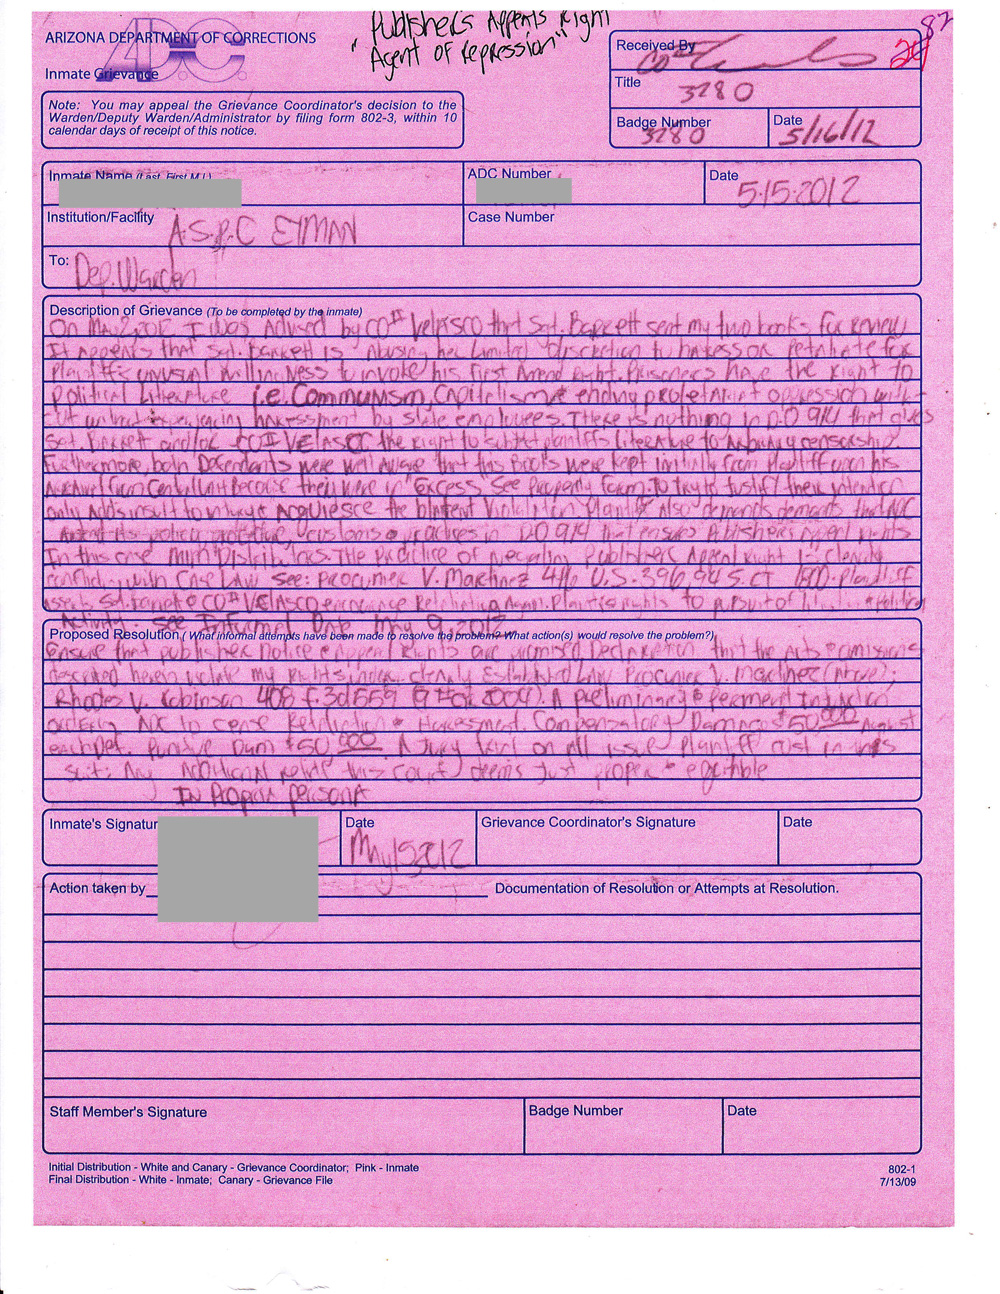 Publisher's Appeals Right
"Agent of repression"
87
ARIZONA DEPARTMENT OF CORRECTIONS
ADC
Inmate Grievance
Received By
CO II
Title
3280
Badge Number
3280
Date
5/16/12
Note: You may appeal the Grievance Coordinator's decision to the
Warden/Deputy Warden/Administrator by filing form 802-3, within 10
calendar days of receipt of this notice.
Inmate Name (Last, First M.I.)
ADC Number
Date
5-15-2012
Institution/Facility
A.S.P.C EYMAN
Case Number
To:
Dep. Warden
Description of Grievance (To be completed by the inmate)
I was Advised by CO II Velasco that Sgt. Barkett sent my two books for review
It Appears that Sgt. Barkett is Abusing her Limited discretion to harass or retaliate for
Plaintiff's unusual willingness to invoke his first Amend Right. Prisoners have the right to
Political Literature i.e. Communism, Capitalism & ending proletariat oppression
experiencing harassment by state employees. There is nothing in D.O 914 that gives
Sgt. Barkett and/or CO II VELASCO the right to subject plaintiffs Literature to Arbitrary censorship
Furthermore, both Defendants were well Aware that this Books were kept initially from Plaintiff upon his
Arrival from Central Unit Because they were in "Excess" See Property Form. To try to justify their intention
only Adds insult to injury & Acquiesce the blatent Violation Plaintiff Also demands demands that ADC
Amend its policy, procedure, customs & practices in D.O 914 that ensures Publishers Appeal rights
In this case The Practice of Publishers Appeal right is clearly
conflicting with Case Law See: Procunier V. Martinez 416 U.S. 396, 94 S.CT 1800. Plaintiff
Sgt. Barkett & CO II VELASCO Plaintiffs rights to
Activity. See Informal Date May 9, 2012
Proposed Resolution ( What informal attempts have been made to resolve the problem? What action(s) would resolve the problem?)
Ensure that publisher Notice & Appeal Rights are promised, Declaration that the Acts & omissions
described herein violate my Rights under clearly Established Law Procunier V. Martinez (Above);
Rhodes V. Robinson 408 F.3d 559 (9th Cir. 2004) A preliminary & Permanent Injunction
ordering ADC to cease Retaliation & Harassment. Compensatory Damages $50,000 Against
each Def. Punitive Dam $50,000 A Jury trial on all issue Plaintiff cost in this
suit: Any Additional relief this court deems Just proper & equitible
IN Propria PersonA
Inmate's Signatur
Date
May 15 2012
Grievance Coordinator's Signature
Date
Action taken by
Documentation of Resolution or Attempts at Resolution.
Staff Member's Signature
Badge Number
Date
Initial Distribution - White and Canary - Grievance Coordinator; Pink - Inmate
Final Distribution - White - Inmate; Canary - Grievance File
802-1
7/13/09